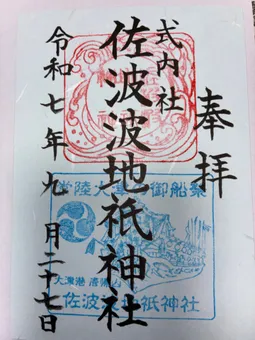 奉拝
式内社
佐波波地祇神社
令和七年九月二十七日
常陸大津の御船祭
大津港
佐波波地祇神社